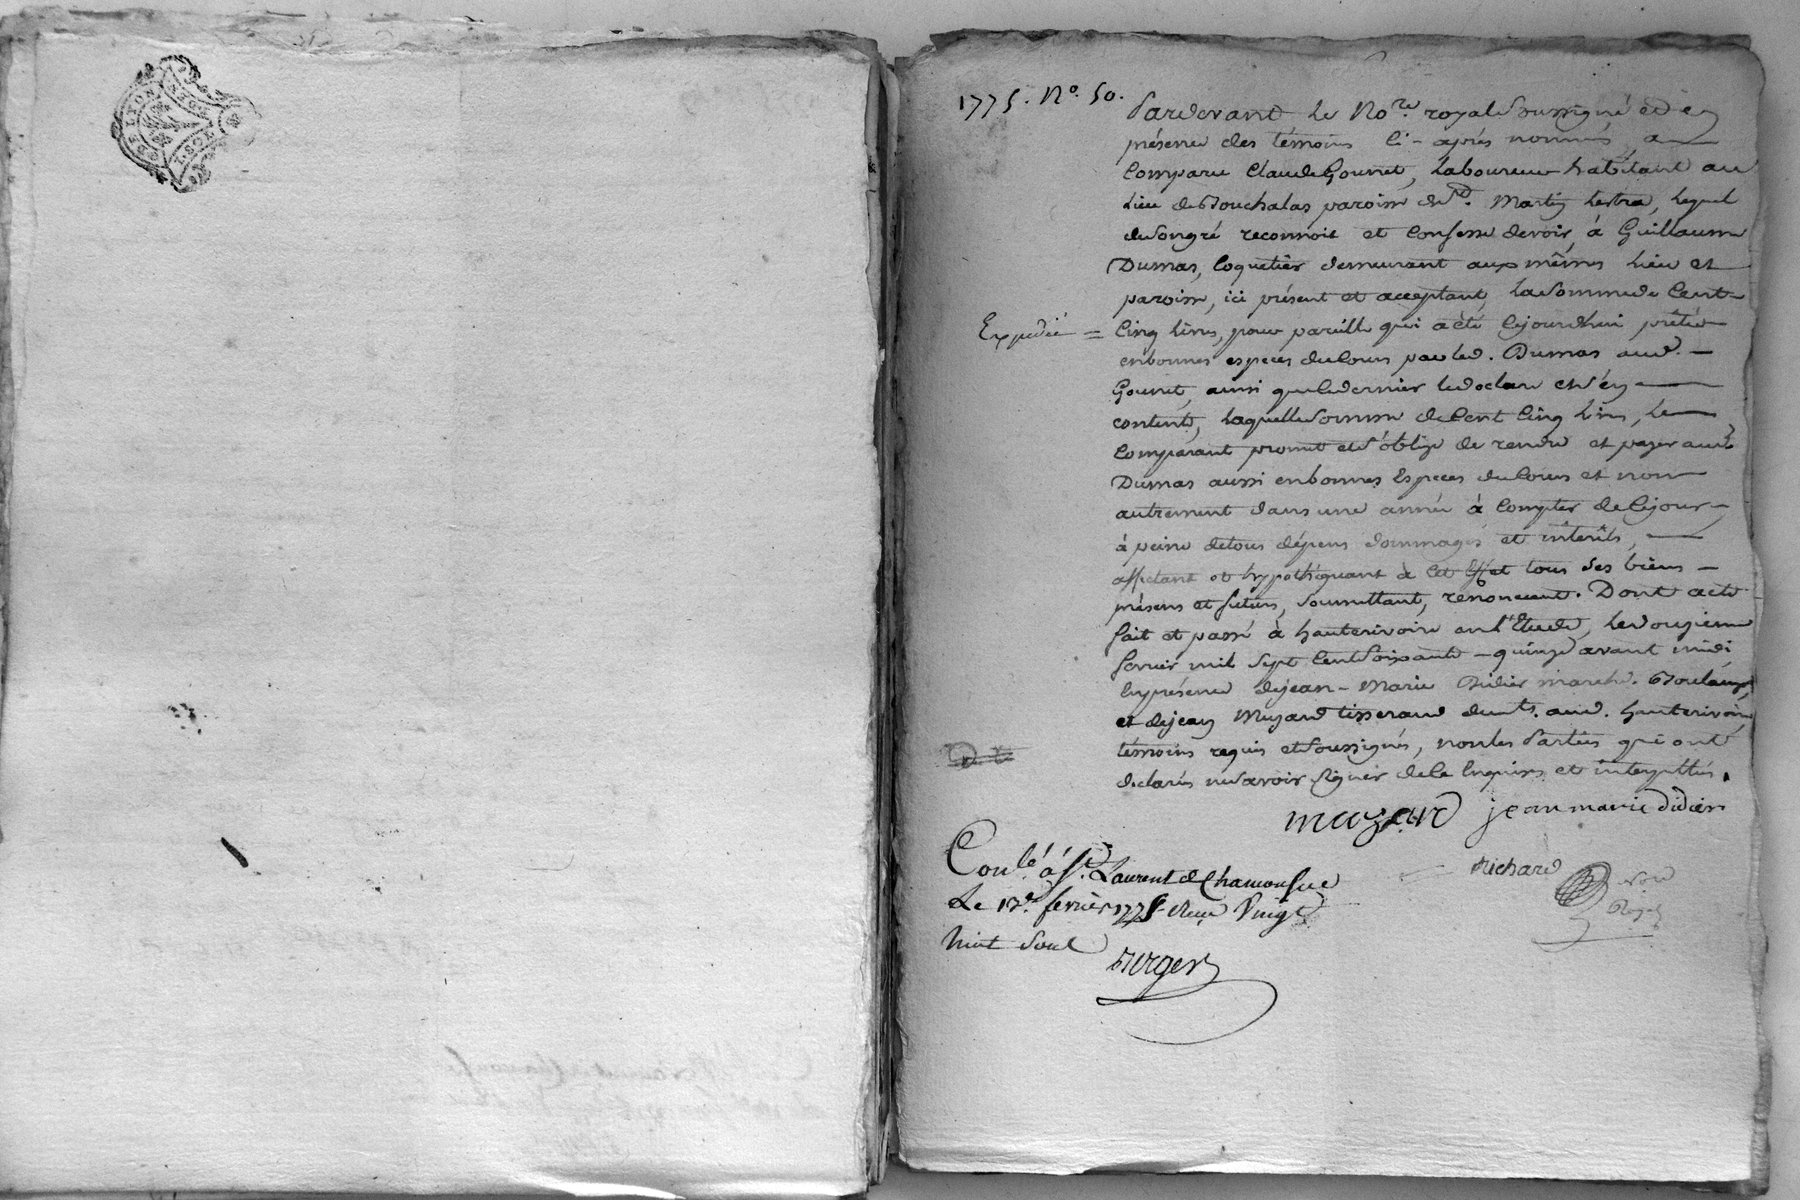 DE LYON
1775. No. 50.
Pardevant Le No.re royal Soussigné et en
présence des témoins Ci-après nommés, a
Comparu Claude Gounet, Laboureur habitant au
Lieu de Bouchalas paroisse de St. Martin Lestra, Lequel
de son gré reconnoit et Confesse devoir, à Guillaume
Dumas, Coquetier demeurant aux mêmes Lieu et
paroisse, ici présent et acceptant, La Somme de Cent
Expedié = Cinq Livres, pour pareille qui a été Cejourdhui prêtée
en bonnes especes du Cours par led. Dumas aud.
Gounet, ainsi que Ce dernier Le déclare et s'en
contente, Laquelle Somme de Cent Cinq Livres, Le
Comparant promet et S'oblige de rendre et payer aud.
Dumas aussi en bonnes Especes du Cours et non
autrement dans une année à Compter de Cejour,
à peine de tous dépens dommages et intérêts,
affectant et hypothéquant à Cet Effet tous Ses biens
présens et futurs, Soumettant, renonceant. Dont acte
fait et passé à hauterivoire en l'Etude, Le douzieme
fevrier mil Sept Cent Soixante-quinze avant midi
En présence de jean-Marie Didier march. Boulanger,
et de jean Muzard tisserand aud. hauterivoire,
témoins requis et Soussignés, non les Parties qui ont
déclarés ne Savoir Signer de Ce Enquises et interpellées.
muzard jean marie didier
Richard
Conlé. à St. Laurent de Chamousset
Le 12e. fevrier 1775 Reçu Vingt
huit Sous
Burger